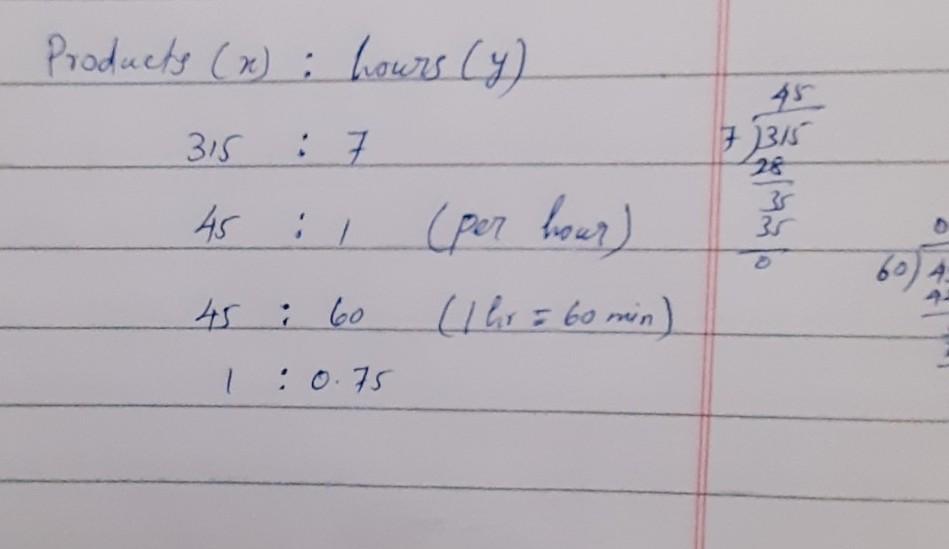 Products (x) : hours (y)
315 : 7
45 : 1 (per hour)
45 : 60 (1 hr = 60 min)
1 : 0.75
45
7)315
28
35
35
0
60)4